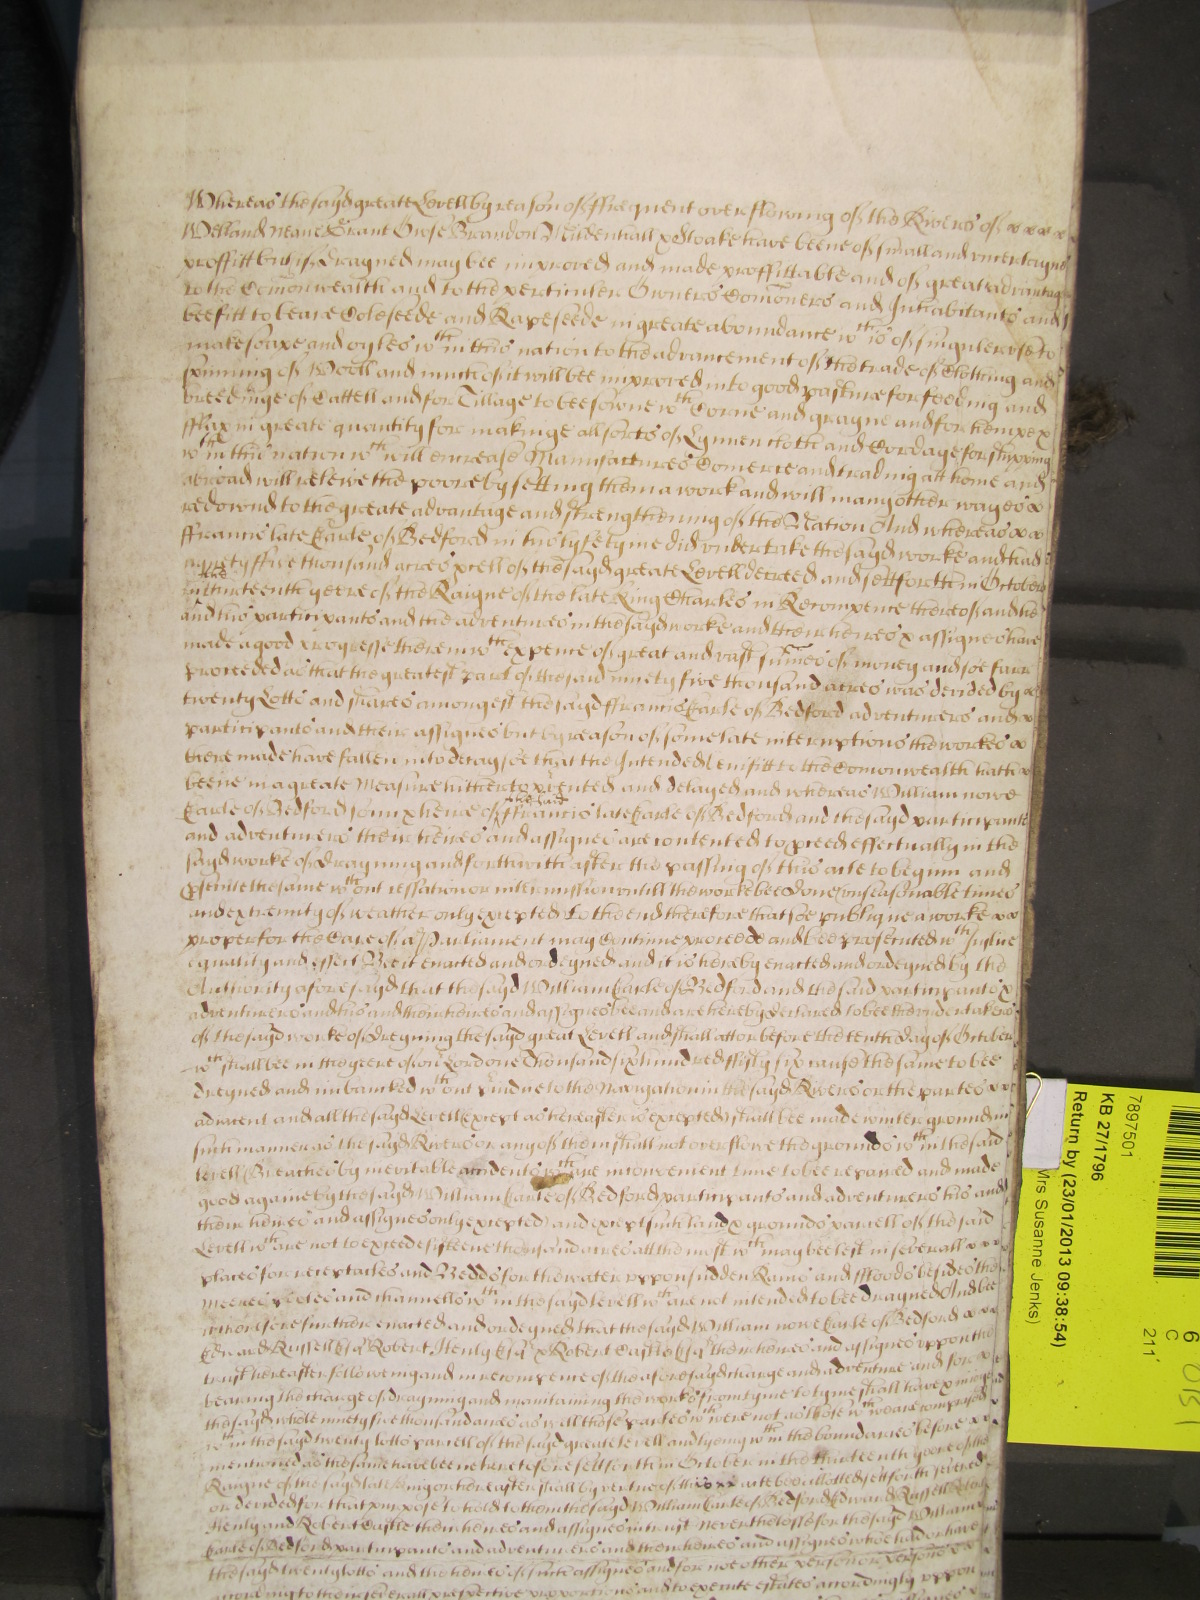 Whereas the sayd greate Levell by reason of ffrequent overflowing of the Rivers of x x x x
Welland Neane Grant Owse Brandon Mildenhall & Stoake have beene of small and uncertayne
proffitt but if drayned may bee improved and made proffittable and of great advantage
to the Comonwealth and to the perticuler Owners Comoners and Inhabitants and
bee fitt to beare Coleseede and Rapeseede in greate aboundance wth is of singuler use to
make soape and oyles wthin this nation to the advancement of the trade of Clothing and
spinning of Wooll and much of it will bee improved into good pasture for feeding and
breedinge of Cattell and for Tillage to bee sowne wth Corne and grayne and for hempe x
fflax in greate quantity for makinge all sorts of Lynnen cloth and Cordage for shipping
wthin this nation wth will encrease Manufactures Comerce and trading att home and
abroad will releive the poore by setting them a work and will many other wayes x
redownd to the greate advantage and strengthening of the Nation And whereas x x
ffrancis late Earle of Bedford in his lyfe tyme did undertake the sayd worke and had
ninety ffive thousand acres pcell of the sayd greate Levell decreed and sett forth in October
in the thirteenth yeere of the Raigne of the late King Charles in Recompence thereof and he
and his participants and the adventurers in the sayd worke and their heires & assignes have
made a good progresse therein wth expence of great and vast sumes of money and soe farr
proceeded as that the greatest part of the said ninety five thousand acres was devided by x
twenty Lotts and shares amongest the sayd ffrancis Earle of Bedford adventurers and x
participants and their assignes but by reason of some late interruptions the workes x
there made have fallen into decay soe that the Intended benifitt to the Comonwealth hath x
beene in a greate Measure hitherto pvented and delayed and whereas William nowe
Earle of Bedford sonn & heire of the said ffrancis late Earle of Bedford and the sayd participants
and adventurers their heires and assignes are contented to pceed effectually in the
sayd worke of drayning and forthwith after the passing of this acte to beginn and
psecute the same wthout cessation or intermission untill the worke bee done (unseasonable times
and extremity of weather only excepted) To the end therefore that soe publique a worke x x
proper for the Care of a Parliament may Continue proceede and bee prosecuted wth Justice
equality and effect Bee it enacted and ordeyned and it is hereby enacted and ordeyned by the
Authority aforesayd that the sayd William Earle of Bedford and the said participants &
adventurers and his and their heires and assignes bee and are hereby declared to bee the undertakers
of the sayd worke of dreyning the sayd great Levell and shall att or before the tenth day of October
wth shall bee in the yeere of our Lord one Thousand six hundred fifty six cause the same to bee
dreyned and imbancked wthout pjudice to the Navigation in the sayd Rivers or the partes x x
adiacent and all the sayd Levell (except as hereafter is excepted) shall bee made winter ground in
such manner as the sayd Rivers or any of them shall not overflowe the grounds wthin the said
levell (Breaches by inevitable accidents wth are in convenient time to bee repaired and made
good againe by the sayd William Earle of Bedford participants and adventurers his and
their heires and assignes only excepted) and except such land & grounds parcell of the said
Levell wth are not to exceede fifteene thousand acres att the most wth may bee left in severall x x x
places for receptacles and Bedds for the water uppon sudden Rains and ffloods besides the
Meeres Pooles and channells wthin the sayd Levell wth are not intended to bee drayned And bee
it therefore further enacted and ordeyned that the sayd William now Earle of Bedford x x x
Edward Russell Esqr Robert Henly Esqr & Robert Castle Esqr their heires and assignes uppon the
trust hereafter following and in recompence of the aforesayd charge and adventure and for x
bearing the charge of drayning and maintaining the works from tyme to tyme shall have & inioye
the sayd whole ninety five thousand acres as well those partes wth were not as those wth were comprised
wthin the sayd twenty lotts parcell of the sayd greate levell and lyeing wthin the boundaries before x x
mentioned as the same have been heretofore sett forth in October in the thirteenth yeere of the
Raigne of the sayd late King or hereafter shall by vertue of this x x acte bee allotted sett forth severed
or devided for that purpose To hold to them the sayd William Earle of Bedford Edward Russell Robert
Henly and Robert Castle their heires and assignes in trust Nevertheless for the sayd William
Earle of Bedford participants and adventurers and their heires and assignes who have had or have
the sayd twenty lotts and the heires of such assignes and for noe other person or persons x x
according to their severall prospective proportions and to execute estates accordingly uppon
7897501
KB 27/1796
Return by (23/01/2013 09:38:54)
Mrs Susanne Jenks)
6
C
211